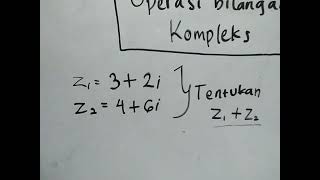 Operasi bilangan
Kompleks
Z₁ = 3 + 2i
Z₂ = 4 + 6i
Tentukan
Z₁ + Z₂